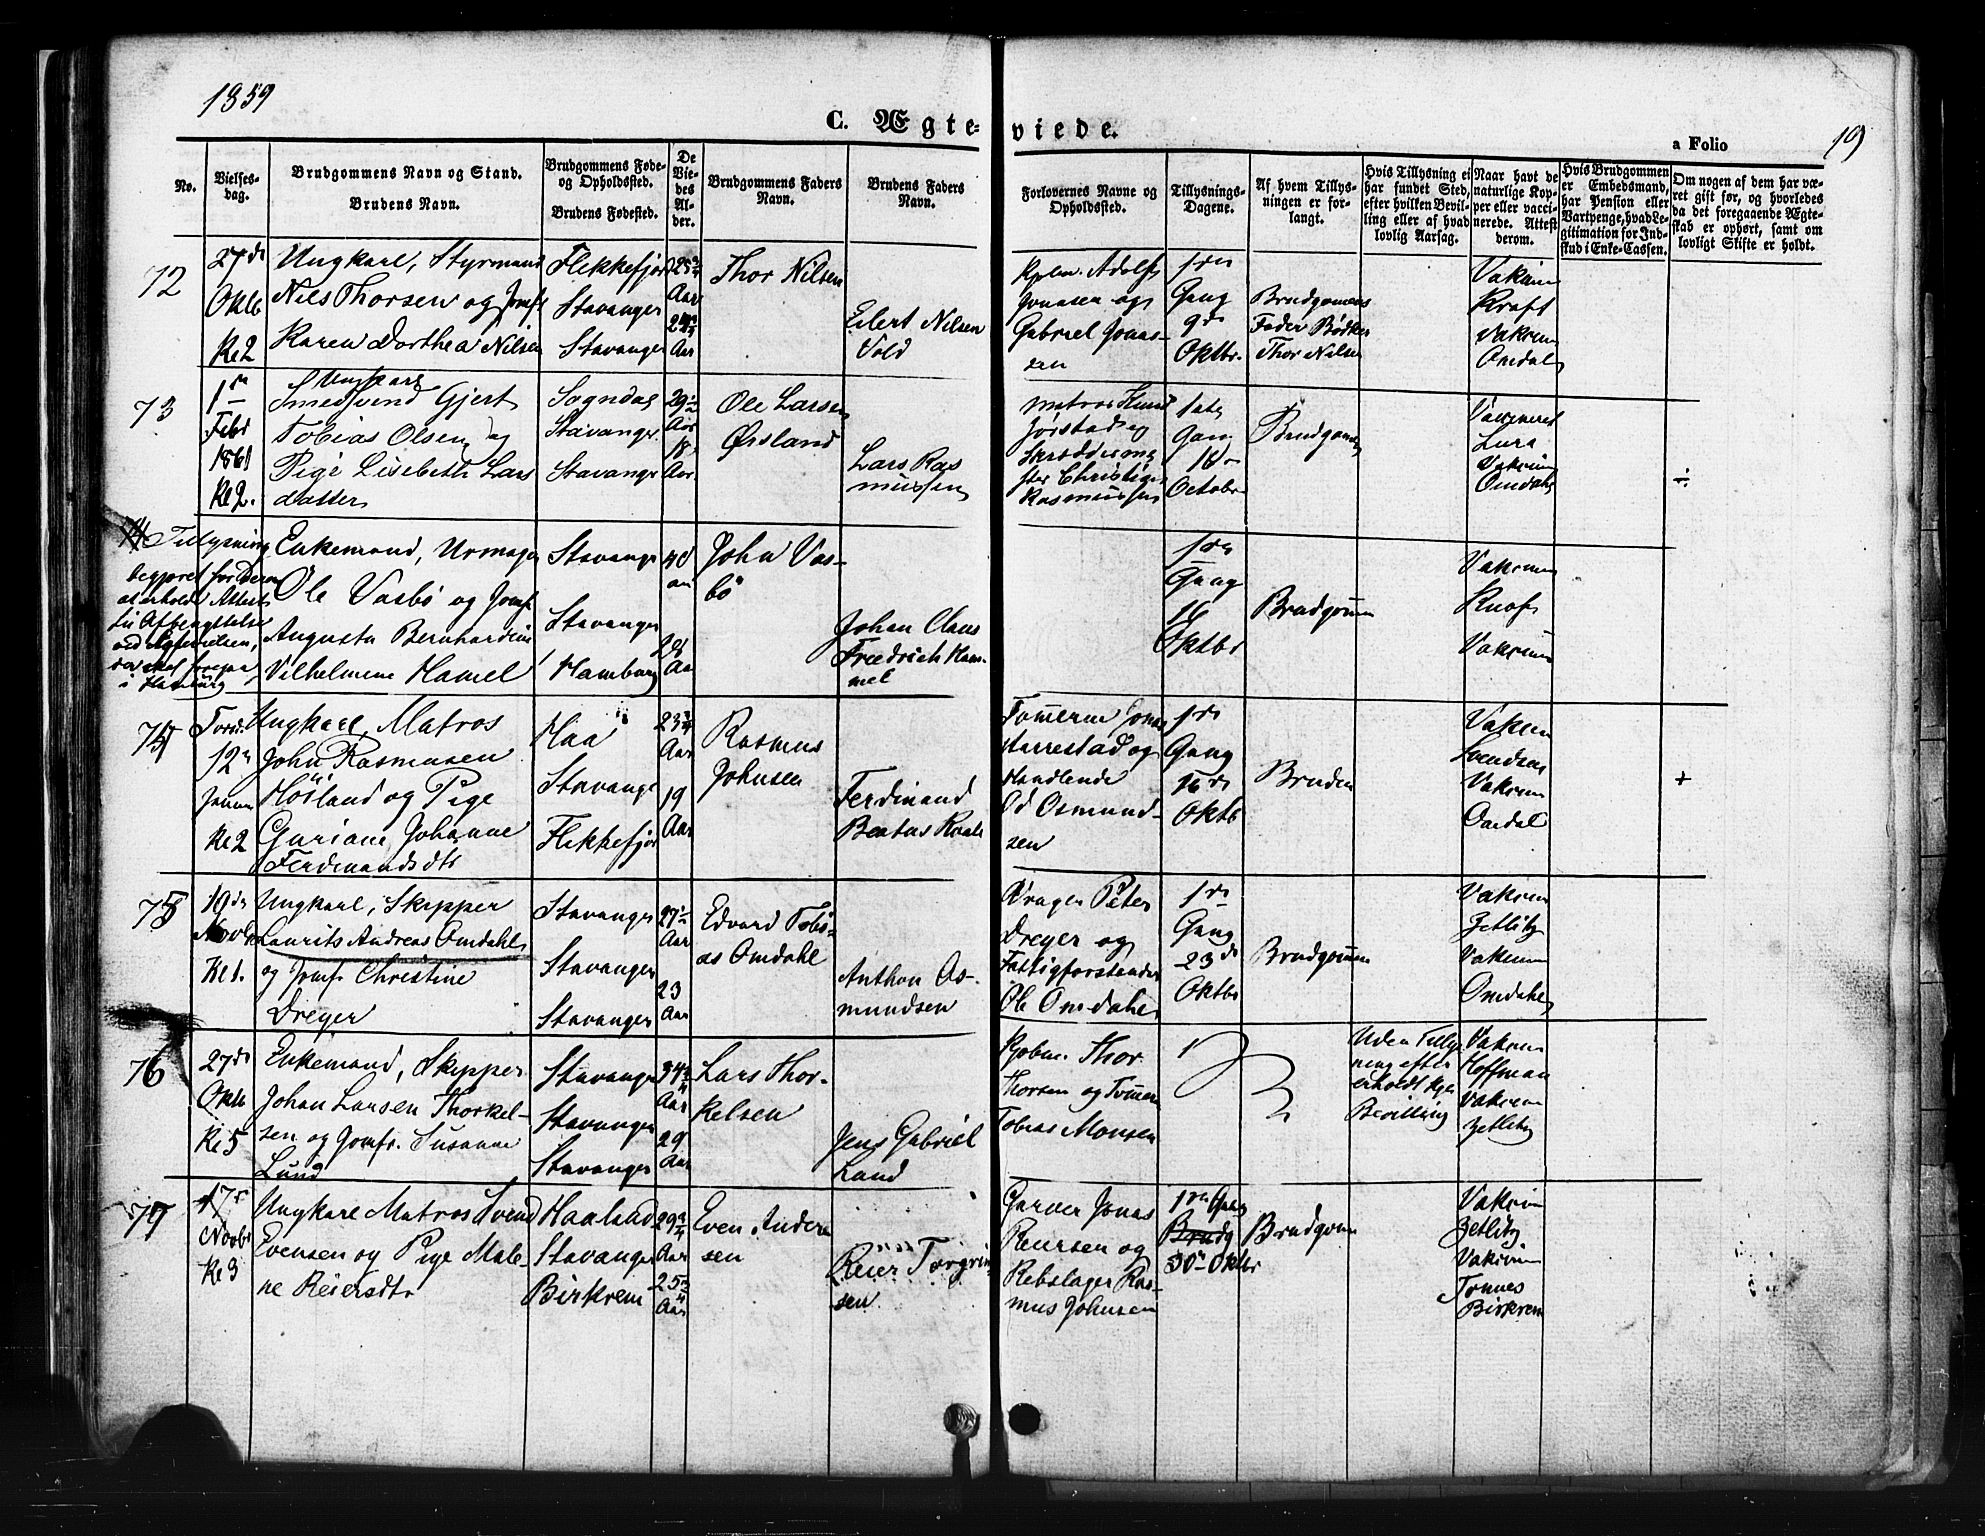 1859
C. Ægteviede.
a Folio
109
No.
Vielses-
dag.
Brudgommens Navn og Stand.
Brudens Navn.
Brudgommens Føde-
og Opholdssted.
Brudens Fødested.
De
Vie-
des
Al-
der.
Brudgommens Faders
Navn.
Brudens Faders
Navn.
Forlovernes Navne og
Opholdssted.
Tillysnings-
Dagene.
Af hvem Tillys-
ningen er for-
langt.
Hvis Tillysning ei
har fundet Sted,
efter hvilken Bevil-
ling eller af hvad
lovlig Aarsag.
Naar havt de
naturlige Kop-
per eller vacci-
nerede. Attest
derom.
Hvis Brudgommen
er Embedsmand,
har Pension eller
Vartpenge, hvad Le-
gitimation for Ind-
skud i Enke-Cassen.
Om nogen af dem har væ-
ret gift før, og hvorledes
da det foregaaende Ægte-
skab er ophørt, samt om
lovligt Skifte er holdt.
72
27de
Oktb
Kl 2
Ungkarl, Styrmand
Nils Thorsen og Jomf.
Karen Dorthea Nilsen
Flekkefjor
Stavanger
Stavanger
Aar
Aar
Thor Nilsen
Eilert Nilsen
Vold
Adolf
Jonasen og
Gabriel Jonas-
sen
1ste
Gang
9de
Oktbr.
Brudgomens
Fader Bødker
Thor Nilsen
Vakcin
Kraft
Vakcin
Omdal
73
1ste
Febr
1861
Kl 2.
Ungkarl
Smedsvend Gjert
Tobias Olsen og
Pige Lisebeth Lars
datter
Sogndal
Stavanger
Stavanger
29½
Aar
18
Aar
Ole Larsen
Ørsland
Lars Ras
mussen
Matros Knud
Jørstad og
Skrædderme
ster Christian
Rasmussen
1ste
Gang
16
October
Brudgomen
Vaccineret
Lura
Vakcin
Omdahl
÷
74 Tillysning
i Hamburg
Enkemand, Urmager
Ole Vasbø og Jomf.
Augusta Bernhardine
Vilhelmine Hamel
Stavanger
Stavanger
Hamburg
40
Aar
John Vas-
bø
Johan Claus
Friedrich Ham-
mel
1ste
Gang
16
Oktbr
Brudgomen
Vakcin
Knof
Vakcin
74
12te
Kl 2
Ungkarl, Matros
John Rasmusen
Høiland og Pige
Guriane Johanne
Ferdinandsdtr
Haa
Stavanger
Flekkefjor
23¾
Aar
19
Aar
Rasmus
Johnsen
Ferdinand
Beatus
Tømerm Jonas
Harrestad og
Handlende
Od Osmund-
sen
1ste
Gang
16de
Oktb
Bruden
Vakcin
Svendsen
Vakcin
Omdal
+
75
19de
Novbr
Kl 1.
Ungkarl, Skipper
Laurits Andreas Omdahl
og Jomf. Christine
Dreyer
Stavanger
Stavanger
Stavanger
27½
Aar
23
Aar
Edvard Tobi-
as Omdahl
Anthon As-
mundsen
Drager Peter
Dreyer og
Fattigforstander
Ole Omdahl
1ste
Gang
23de
Oktbr
Brudgomen
Vakcin
Zetlitz
Vakcin
Omdahl
76
27de
Oktb
Kl 5
Enkemand, Skipper
Johan Larsen Thorkel-
sen og Jomfr. Susanne
Lund
Stavanger
Stavanger
Stavanger
34¾
Aar
29
Aar
Lars Thor-
kelsen
Jens Gabriel
Lund
Kjøbm. Thor
Thorsen og Tømerm
Tobias Monsen
Uden Tillys
ning efter
erholdt kgl
Bevilling
Vakcin
Hoffman
Vakcin
Zetlitz
77
17de
Novbr
Kl 3
Ungkarl Matros Svend
Evensen og Pige Male-
ne Reiersdtr
Haaland
Stavanger
Birkrem
29¾
Aar
25¾
Aar
Even Ander
sen
Reier Torgrim
sen
Garver Jonas
Reiersen og
Rebslager Ras-
mus Johnsen
1ste Gang
Brudg
30te Oktbr
Brudgomen
Vakcin
Zetlitz
Vakcin
Tonnes
Birkrem